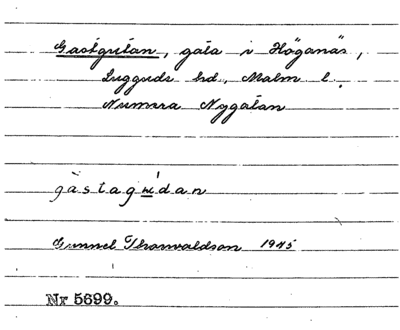 Gastgutan, gata i Höganäs,
Luggude hd, Malm l.
Numera Nygatan
gàstagú̲dan
Gunnel Thorvaldson 1945
Nr 5699.